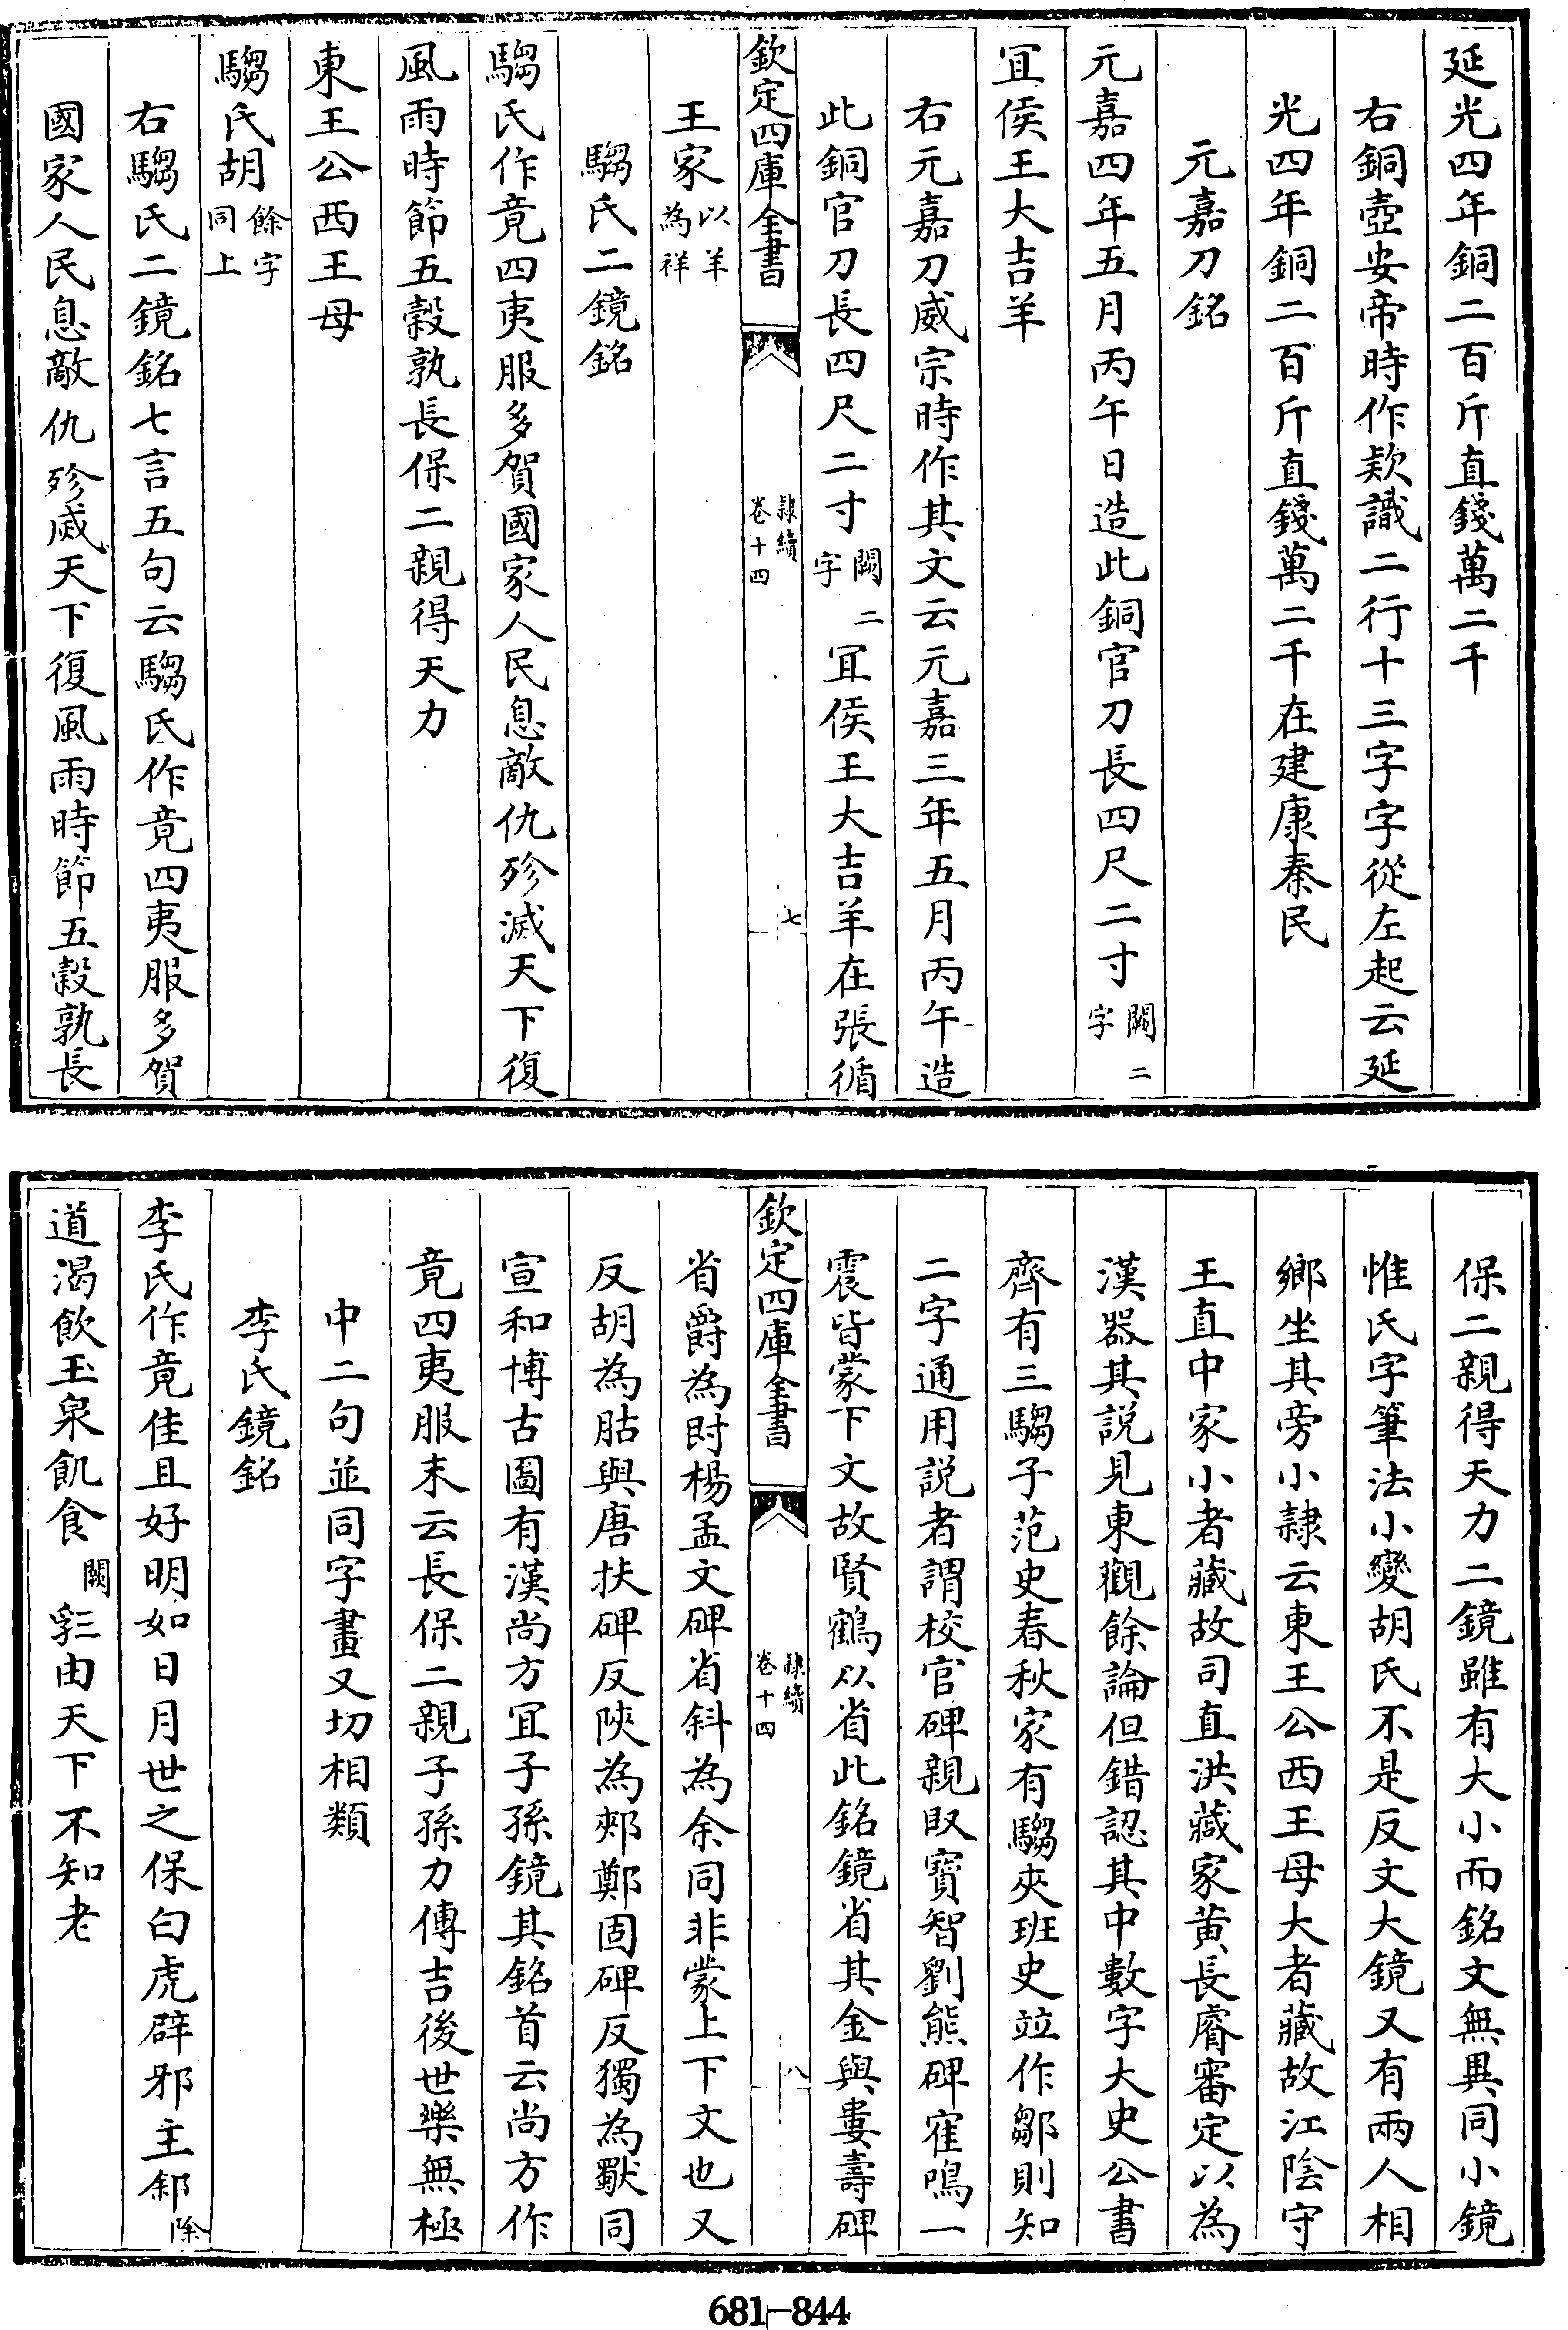 延光四年銅二百斤直錢萬二千
右銅壺安帝時作欵識二行十三字字從左起云延
光四年銅二百斤直錢萬二千在建康秦民
元嘉刀銘
元嘉四年五月丙午日造此銅官刀長四尺二寸闕二字
冝侯王大吉羊
右元嘉刀威宗時作其文云元嘉三年五月丙午造
此銅官刀長四尺二寸闕二字冝侯王大吉羊在張循
王家以羊為祥
欽定四庫全書
隸續
卷十四
七
騶氏二鏡銘
騶氏作竟四夷服多賀國家人民息敵仇殄滅天下復
風雨時節五穀孰長保二親得天力
東王公西王母
騶氏胡餘字同上
右騶氏二鏡銘七言五句云騶氏作竟四夷服多賀
國家人民息敵仇殄滅天下復風雨時節五穀孰長
保二親得天力二鏡雖有大小而銘文無異同小鏡
惟氏字筆法小變胡氏不是反文大鏡又有兩人相
鄉坐其旁小隸云東王公西王母大者藏故江陰守
王直中家小者藏故司直洪藏家黄長睿審定以為
漢器其説見東觀餘論但錯認其中數字大史公書
齊有三騶子范史春秋家有騶夾班史竝作鄒則知
二字通用説者謂校官碑親臤寶智劉熊碑寉鳴一
震皆蒙下文故賢鶴从省此銘鏡省其金與婁壽碑
欽定四庫全書
隸續
卷十四
八
省爵為尌楊孟文碑省斜為余同非蒙上下文也又
反胡為䏦與唐扶碑反陜為郟鄭固碑反獨為㺉同
宣和博古圖有漢尚方冝子孫鏡其銘首云尚方作
竟四夷服末云長保二親子孫力傳吉後世樂無極
中二句並同字畫又切相類
李氏鏡銘
李氏作竟佳且好明如日月世之保白虎辟邪主䣄除
道渴飲玉泉飢食闕㲽由天下不知老
681-844